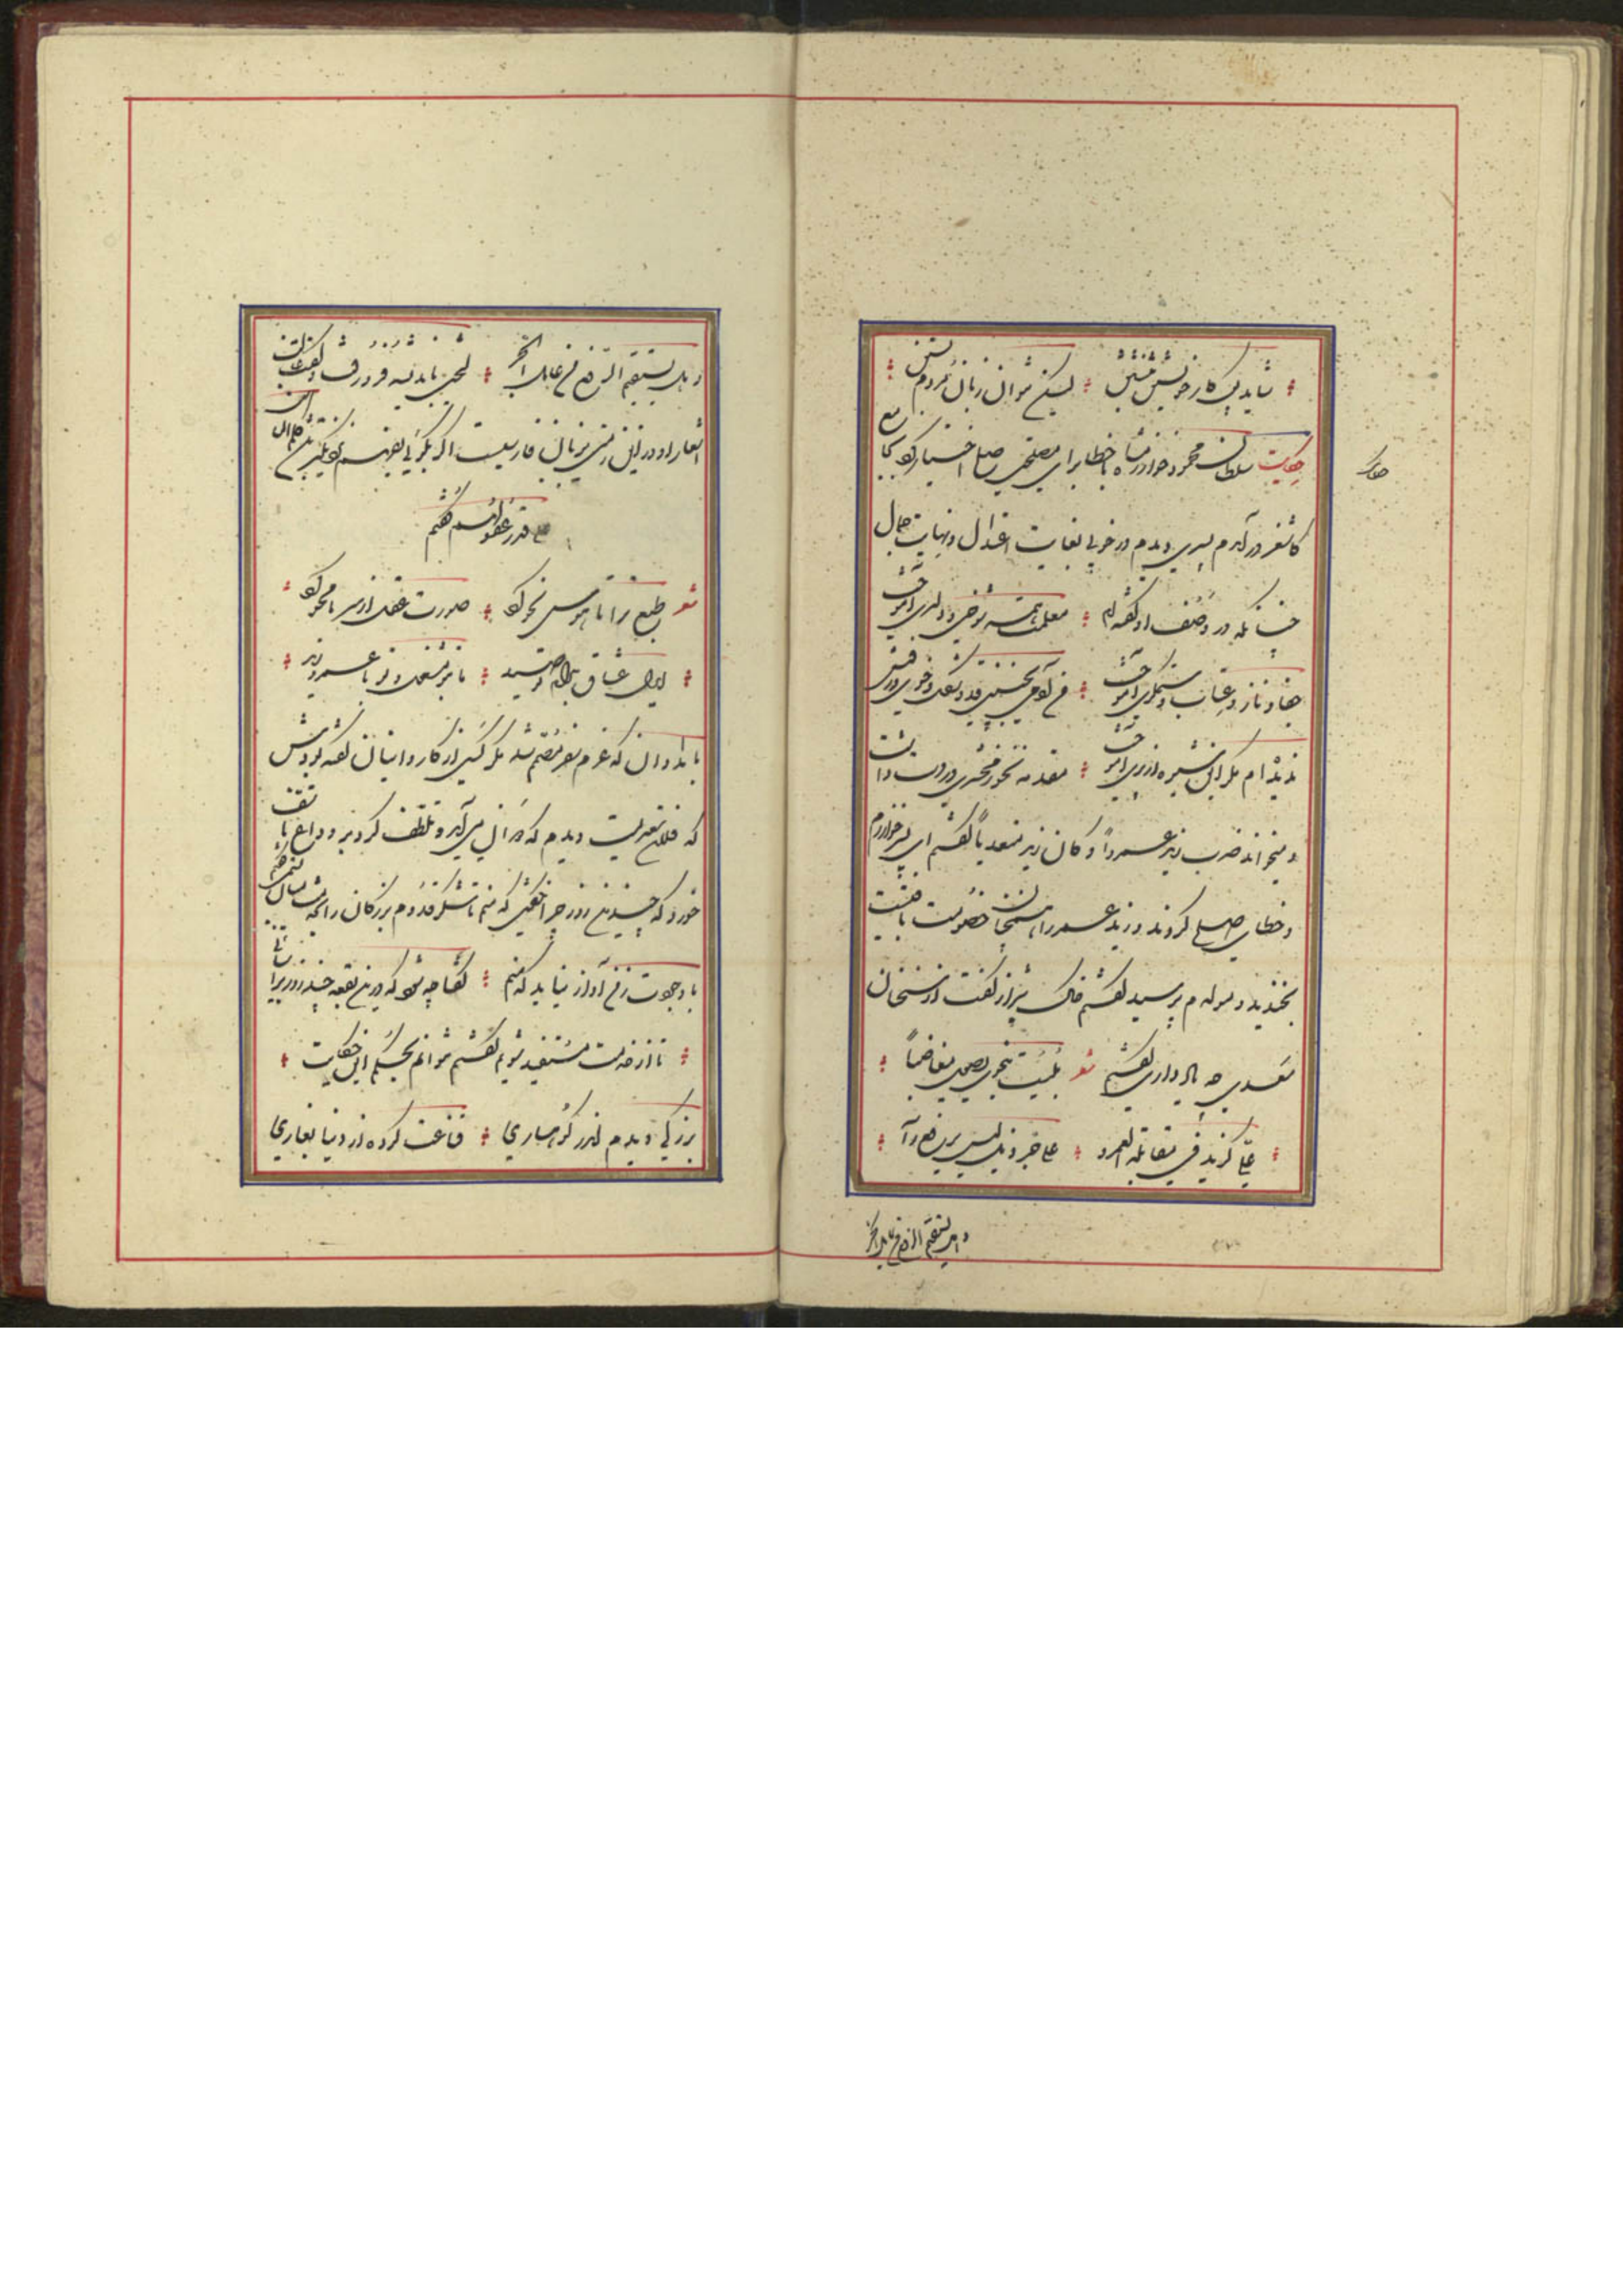 شاید پس کار خویشتن بنشستن لیکن نتوان زبان مردم بستن
حکایت سلطان محمود خوارزمشاه با خطا برای مصلحتی صلح اختیار کرد بجامع
کاشغر در آمدم پسری دیدم در خوبی بغایت اعتدال و نهایت جمال
چنانکه در وصف او گفته اند معلمت همه شوخی و دلبری آموخت
جفا و ناز و عتاب و ستمگری آموخت من آدمی بچنین قد و شکل و خوی و روش
ندیده ام مگر این شیوه از پری آموخت مقدمه نحو زمخشری در دست داشت
و میخواند ضرب زید عمرواً و کان زید متعدیاً گفتم ای پسر خوارزم
و خطا صلح کردند و زید و عمرو را همچنان خصومت باقیست
بخندید و مولدم پرسید گفتم خاک شیراز گفت از سخنان
سعدی چه یاد داری گفتم شعر بلیت بنحوی یصول مغاضباً
علی کزید فی مقابلة العمرو علی جر ذیل لیس یرفع رأ
و هل یستقیم الرفع من عامل الجر
حکایت
و هل یستقیم الرفع من عامل الجر لختی باندیشه فرو رفت و گفت غالب
اشعار او درین زمین بزبان فارسیست اگر بگویی بفهم نزدیکتر باشد کلم الناس
علی قدر عقولهم گفتم
شعر طبع ترا تا هوس نحو کرد صورت عقل از دل ما محو کرد
ای دل عشاق بدام تو صید ما بتو مشغول و تو با عمرو و زید
بامدادان که عزم سفر مصمم شد مگر کسی از کاروانیان گفته بودش
که فلان سعدیست دیدم که دوان می آمد و تلطف کرد و بر وداع تأسف
خورد که چندین روز چرا نگفتی که منم تا شکر قدوم بزرگان را میان بستمی گفتم
با وجودت ز من آواز نیاید که منم گفتا چه شود که درین بقعه چند روز برآسایی
تا از خدمت مستفید شویم گفتم نتوانم بحکم این حکایت
بزرگی دیدم اندر کوهساری قناعت کرده از دنیا بغاری